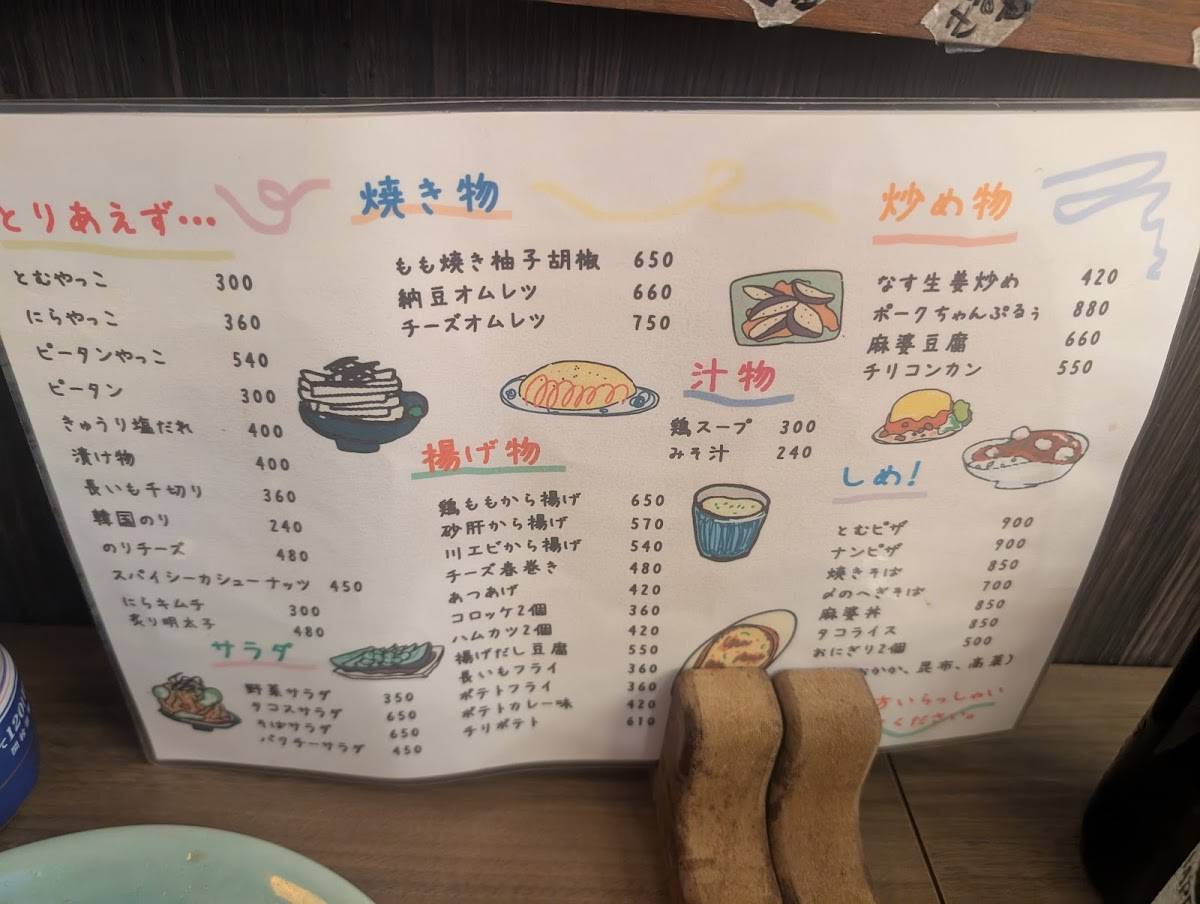 とりあえず…
とむやっこ 300
にらやっこ 360
ピータンやっこ 540
ピータン 300
きゅうり塩だれ 400
漬け物 400
長いも千切り 360
韓国のり 240
のりチーズ 480
スパイシーカシューナッツ 450
にらキムチ 300
炙り明太子 480
サラダ
野菜サラダ 350
タコスサラダ 650
そばサラダ 650
パクチーサラダ 450
焼き物
もも焼き柚子胡椒 650
納豆オムレツ 660
チーズオムレツ 750
揚げ物
鶏ももから揚げ 650
砂肝から揚げ 570
川エビから揚げ 540
チーズ春巻き 480
あつあげ 420
コロッケ2個 360
ハムカツ2個 420
揚げだし豆腐 550
長いもフライ 360
ポテトフライ 360
ポテトカレー味 420
チリポテト 610
汁物
鶏スープ 300
みそ汁 240
炒め物
なす生姜炒め 420
ポークちゃんぷるぅ 880
麻婆豆腐 660
チリコンカン 550
しめ!
とむピザ 900
ナンピザ 900
焼きそば 850
〆のへぎそば 700
麻婆丼 850
タコライス 850
おにぎり2個 500
かか、昆布、高菜)
方いらっしゃい
ください。